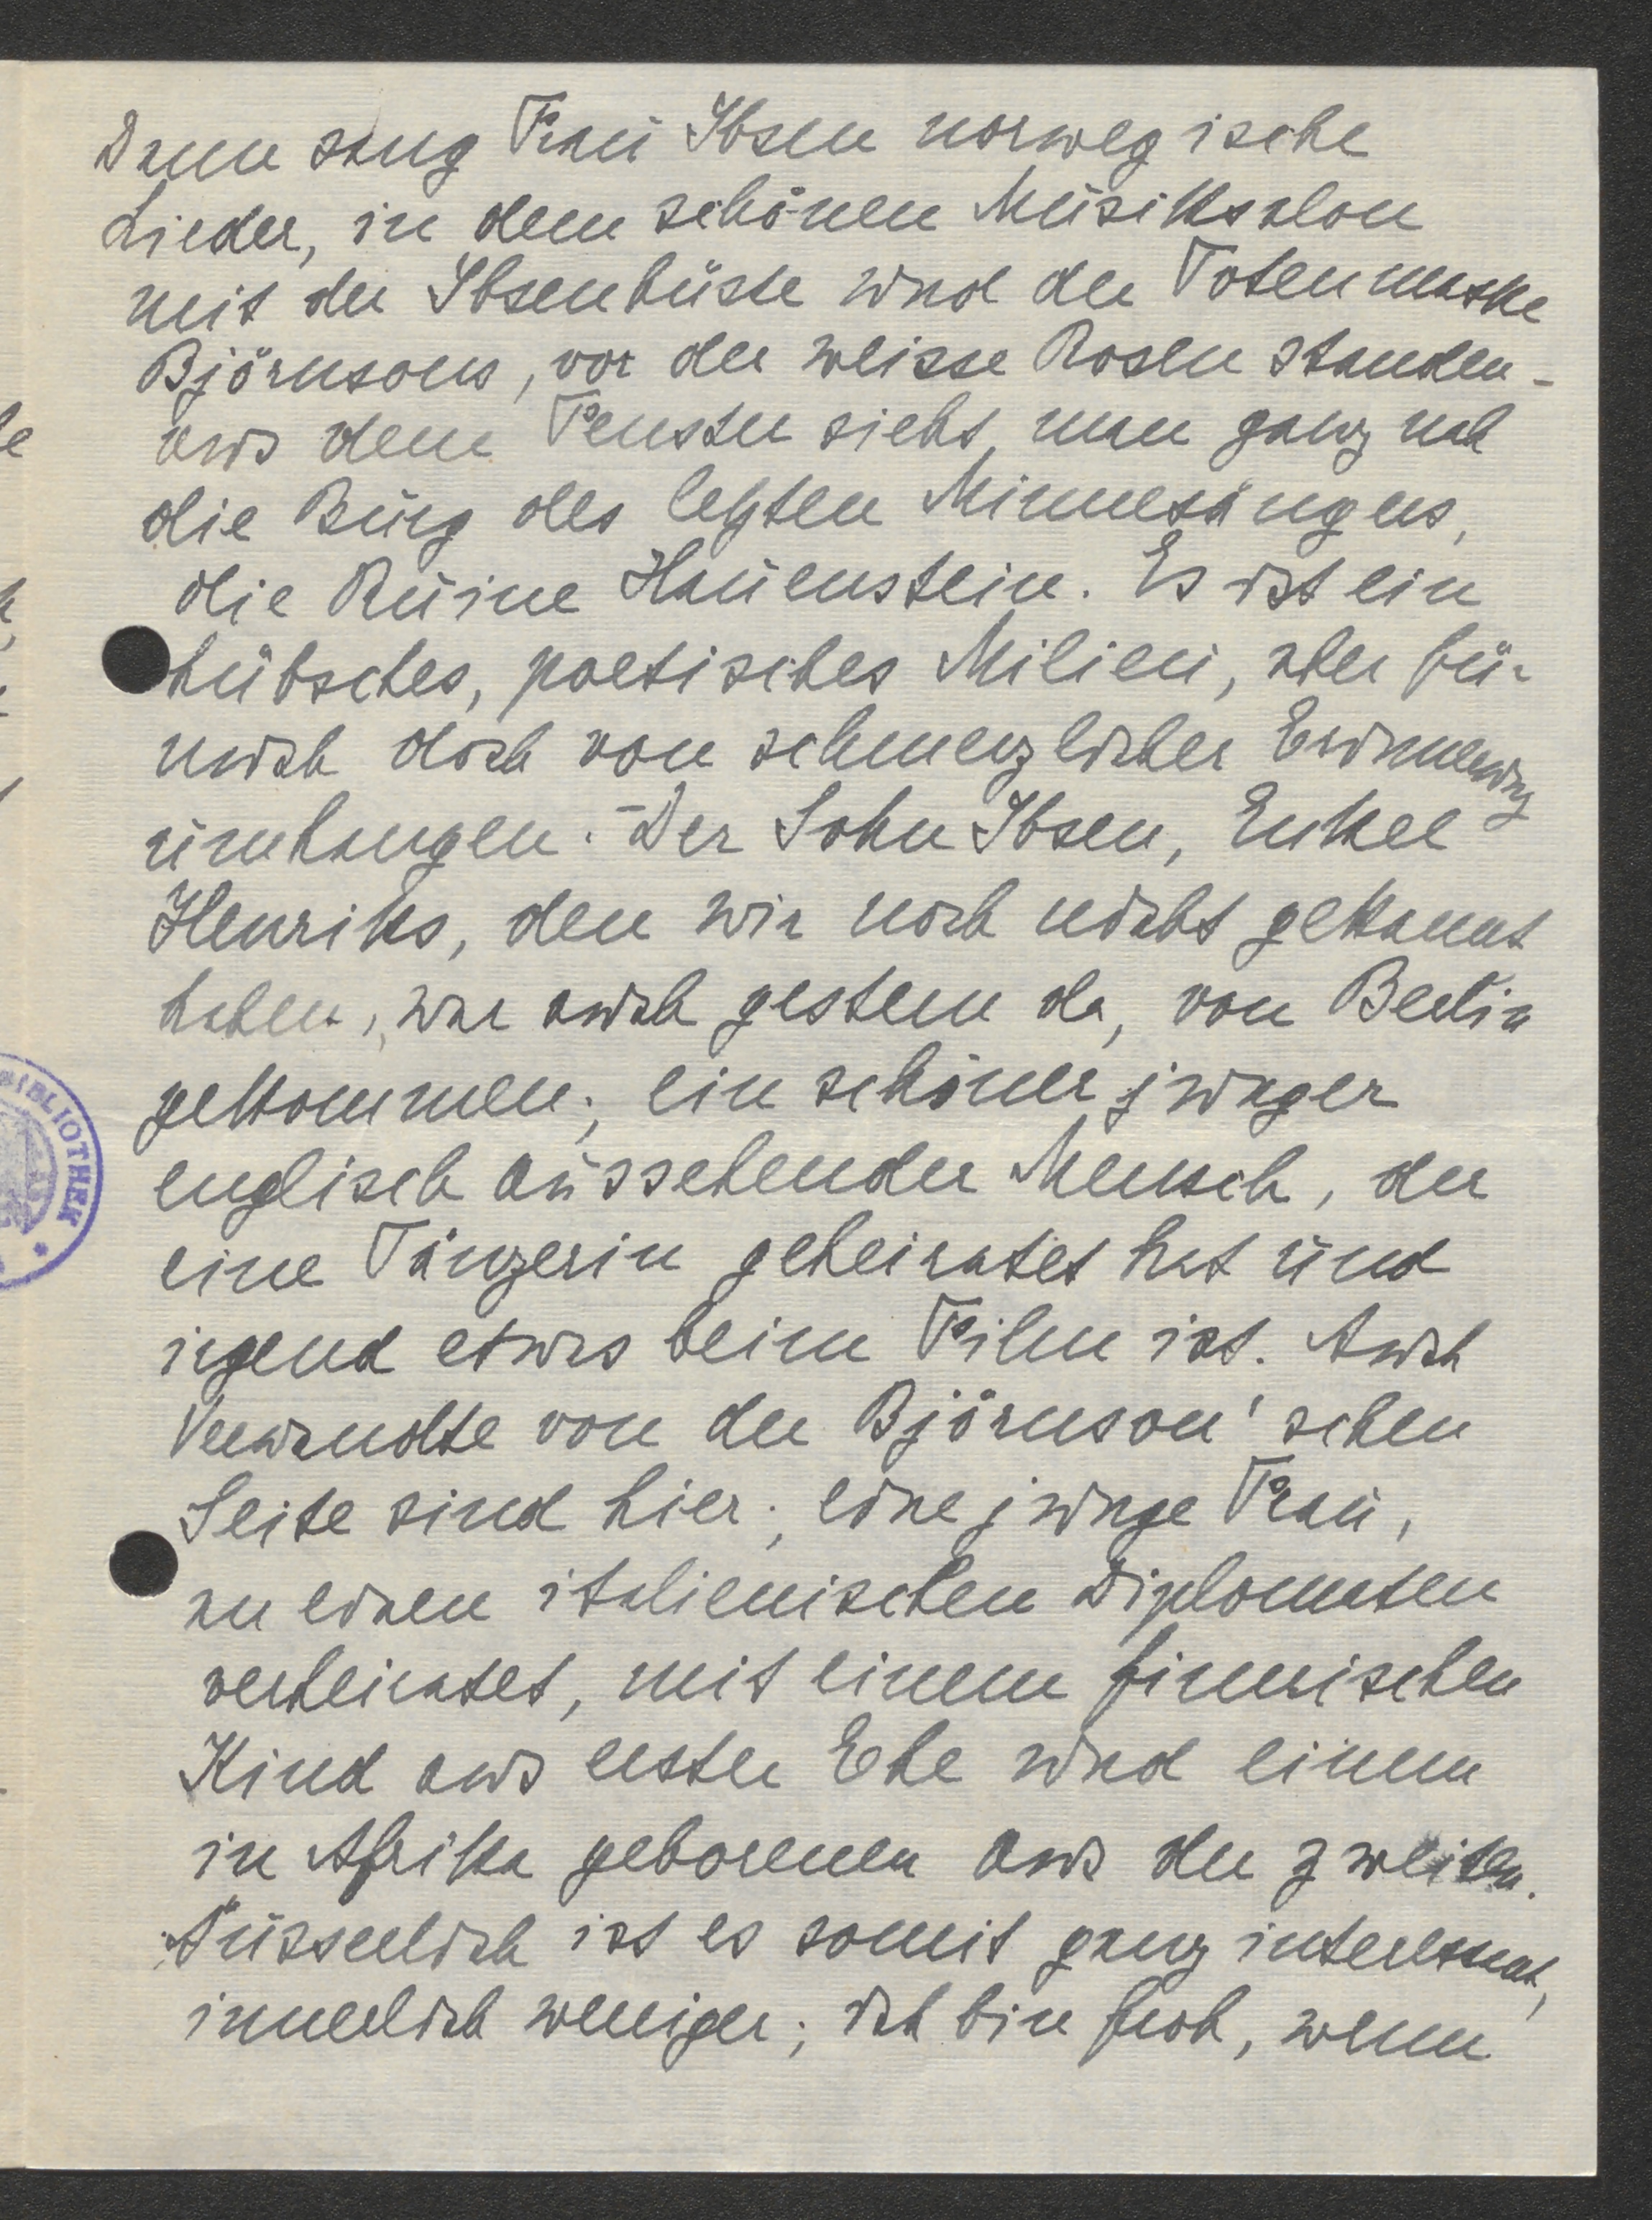 Dann sang Frau Ibsen norwegische
Lieder, in dem schönen Musiksalon
mit der Ibsenbüste und der Totenmaske
Björnsons, vor der weisse Rosen standen -
aus dem Fenster sieht man ganz nah
die Burg des letzten Minnesängers,
die Ruine Hauenstein. Es ist ein
hübsches, poetisches Milieu, aber für
mich doch von schmerzlicher Erinnerung
umhangen. - Der Sohn Ibsen, Enkel
Henriks, den wir noch nicht gekannt
haben, war auch gestern da, von Berlin
gekommen; ein schöner junger
englisch aussehender Mensch, der
eine Tänzerin geheiratet hat und
irgend etwas beim Film ist. Auch
Verwandte von der Björnson'schen
Seite sind hier; eine junge Frau,
an einen italienischen Diplomaten
verheiratet, mit einem finnischen
Kind aus erster Ehe und einem
in Afrika geborenen aus der zweiten.
Äusserlich ist es somit ganz interessant,
innerlich weniger; ich bin froh, wenn
BIBLIOTHEK